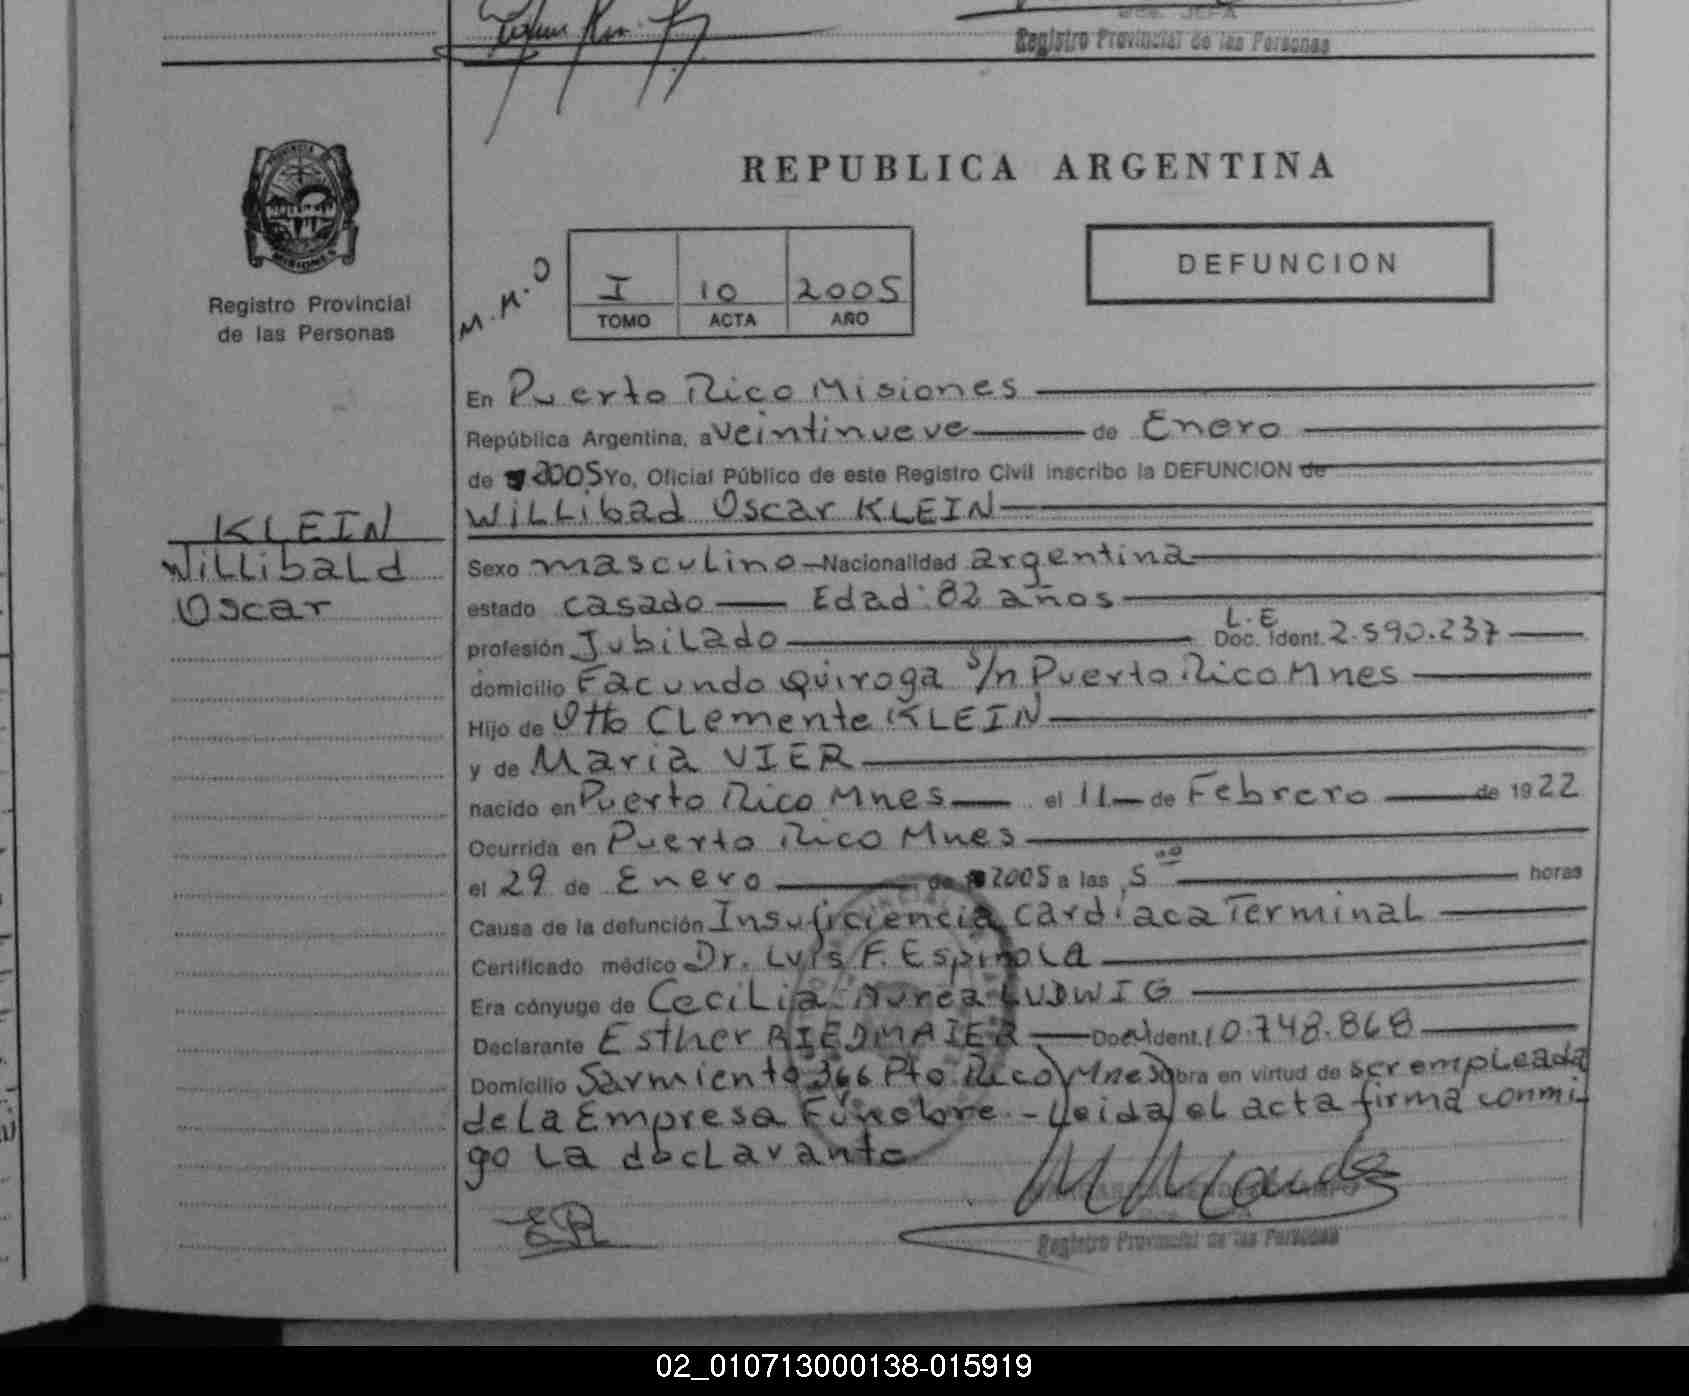 Bde. JEFA
Registro Provincial de las Personas
PROVINCIA DE
MISIONES
Registro Provincial
de las Personas
REPUBLICA ARGENTINA
M.M.O
I 10 2005
TOMO ACTA AÑO
DEFUNCION
En Puerto Rico Misiones
República Argentina, a veintinueve de Enero
de 2005 Yo, Oficial Público de este Registro Civil inscribo la DEFUNCION de
WiLLibad Oscar KLEIN
KLEIN
WiLLibaLd
Oscar
Sexo masculino Nacionalidad argentina
estado casado Edad: 82 años
L.E
profesión JubiLado Doc. Ident. 2.590.237
domicilio Facundo Quiroga s/n Puerto Rico Mnes
Hijo de Otto CLemente KLEIN
y de Maria VIER
nacido en Puerto Rico Mnes el 11 de Febrero de 1922
Ocurrida en Puerto Rico Mnes
el 29 de Enero de 2005 a las 5 00 horas
Causa de la defunción Insuficiencia cardíaca TerminaL
Certificado médico Dr. Luis F. EspinoLa
Era cónyuge de CeciLia Aurea LUDWIG
Declarante Esther RIEDMAIER Doc. Ident. 10.748.868
Domicilio Sarmiento 366 Pto. Rico Mnes Obra en virtud de ser empLeada
de La Empresa Fúnebre.- Leida el acta firma conmi-
go La decLarante
ER
Registro Provincial de las Personas
02_010713000138-015919